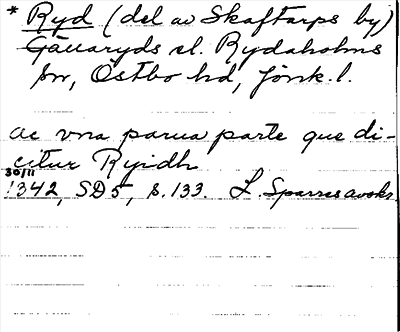 * Ryd (del av Skaftarps by)
Gällaryds el. Rydaholms
sn, Östbo hd, Jönk. l.
ac vna parua parte que di-
citur Ryidh
30/11
1342, SD5, s. 133. L. Sparres avskr.